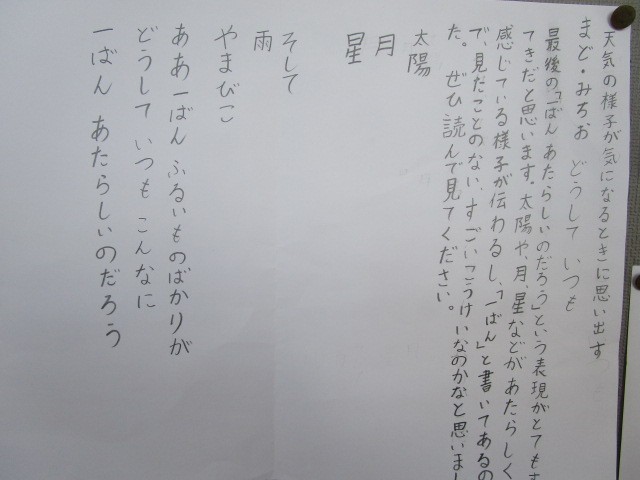 天気の様子が気になるときに思い出す
まど・みちお どうして いつも
最後の「一ばん あたらしいのだろう」という表現がとても
てきだと思います。太陽や、月、星などが あたらしく
感じている様子が伝わるし、「一ばん」と書いてあるの
で、見たことのない、すごいこうけいなのかなと思いまし
た。ぜひ読んで見てください。
太陽
月
星
そして
雨
やまびこ
ああ 一ばん ふるいものばかりが
どうして いつも こんなに
一ばん あたらしいのだろう